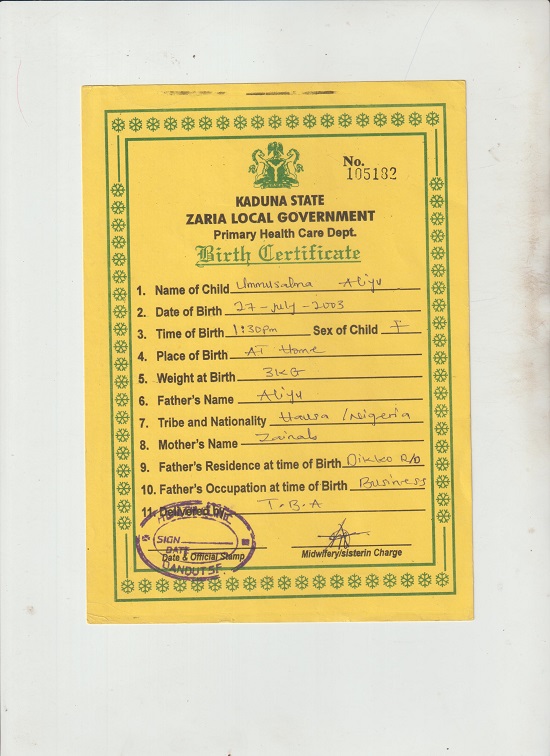 No.
105182
KADUNA STATE
ZARIA LOCAL GOVERNMENT
Primary Health Care Dept.
Birth Certificate
1. Name of Child Ummusalma Aliyu
2. Date of Birth 27-July-2003
3. Time of Birth 1:30pm Sex of Child F
4. Place of Birth AT Home
5. Weight at Birth 3KG
6. Father's Name Aliyu
7. Tribe and Nationality Hausa /Nigeria
8. Mother's Name Zainab
9. Father's Residence at time of Birth Dikko R/D
10. Father's Occupation at time of Birth Business
11. Delivered by T.B.A
SIGN
DATE
Date & Official Stamp
Midwifery/sisterin Charge